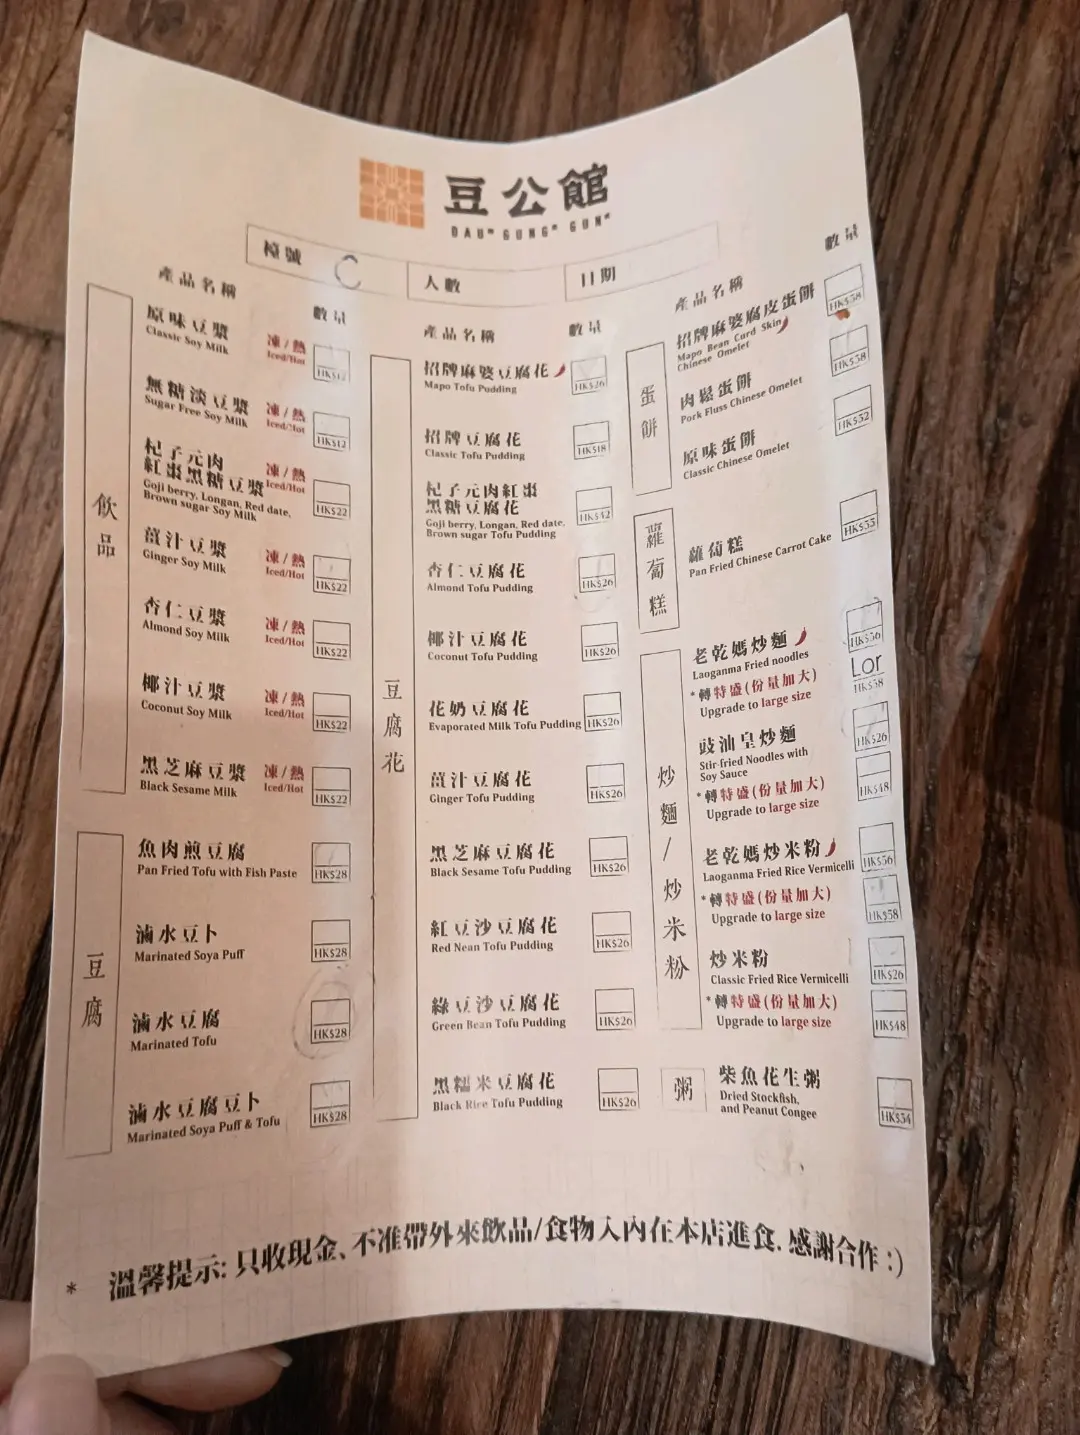 豆公館
DAUM GUNG GUN
檯號
人數
日期
產品名稱
數量
飲品
原味豆漿
Classic Soy Milk
凍/熱
Iced/Hot
HK$12
無糖淡豆漿
Sugar Free Soy Milk
凍/熱
Iced/Hot
HK$12
杞子元肉
紅棗黑糖豆漿
Goji berry, Longan, Red date,
Brown sugar Soy Milk
凍/熱
Iced/Hot
HK$22
薑汁豆漿
Ginger Soy Milk
凍/熱
Iced/Hot
HK$22
杏仁豆漿
Almond Soy Milk
凍/熱
Iced/Hot
HK$22
椰汁豆漿
Coconut Soy Milk
凍/熱
Iced/Hot
HK$22
黑芝麻豆漿
Black Sesame Milk
凍/熱
Iced/Hot
HK$22
豆腐
魚肉煎豆腐
Pan Fried Tofu with Fish Paste
HK$28
滷水豆卜
Marinated Soya Puff
HK$28
滷水豆腐
Marinated Tofu
HK$28
滷水豆腐豆卜
Marinated Soya Puff & Tofu
HK$28
產品名稱
數量
豆腐花
招牌麻婆豆腐花
Mapo Tofu Pudding
HK$26
招牌豆腐花
Classic Tofu Pudding
HK$18
杞子元肉紅棗
黑糖豆腐花
Goji berry, Longan, Red date,
Brown sugar Tofu Pudding
HK$42
杏仁豆腐花
Almond Tofu Pudding
HK$26
椰汁豆腐花
Coconut Tofu Pudding
HK$26
花奶豆腐花
Evaporated Milk Tofu Pudding
HK$26
薑汁豆腐花
Ginger Tofu Pudding
HK$26
黑芝麻豆腐花
Black Sesame Tofu Pudding
HK$26
紅豆沙豆腐花
Red Nean Tofu Pudding
HK$26
綠豆沙豆腐花
Green Bean Tofu Pudding
HK$26
黑糯米豆腐花
Black Rice Tofu Pudding
HK$26
產品名稱
數量
蛋餅
招牌麻婆腐皮蛋餅
Mapo Bean Curd Skin
Chinese Omelet
HK$38
肉鬆蛋餅
Pork Fluss Chinese Omelet
HK$38
原味蛋餅
Classic Chinese Omelet
HK$32
蘿蔔糕
蘿蔔糕
Pan Fried Chinese Carrot Cake
HK$33
炒麵/炒米粉
老乾媽炒麵
Laoganma Fried noodles
HK$36
*轉特盛(份量加大)
Upgrade to large size
Lor
HK$58
豉油皇炒麵
Stir-fried Noodles with
Soy Sauce
HK$26
*轉特盛(份量加大)
Upgrade to large size
HK$48
老乾媽炒米粉
Laoganma Fried Rice Vermicelli
HK$36
*轉特盛(份量加大)
Upgrade to large size
HK$58
炒米粉
Classic Fried Rice Vermicelli
HK$26
*轉特盛(份量加大)
Upgrade to large size
HK$48
粥
柴魚花生粥
Dried Stockfish,
and Peanut Congee
HK$34
* 溫馨提示: 只收現金、不准帶外來飲品/食物入內在本店進食. 感謝合作 :)